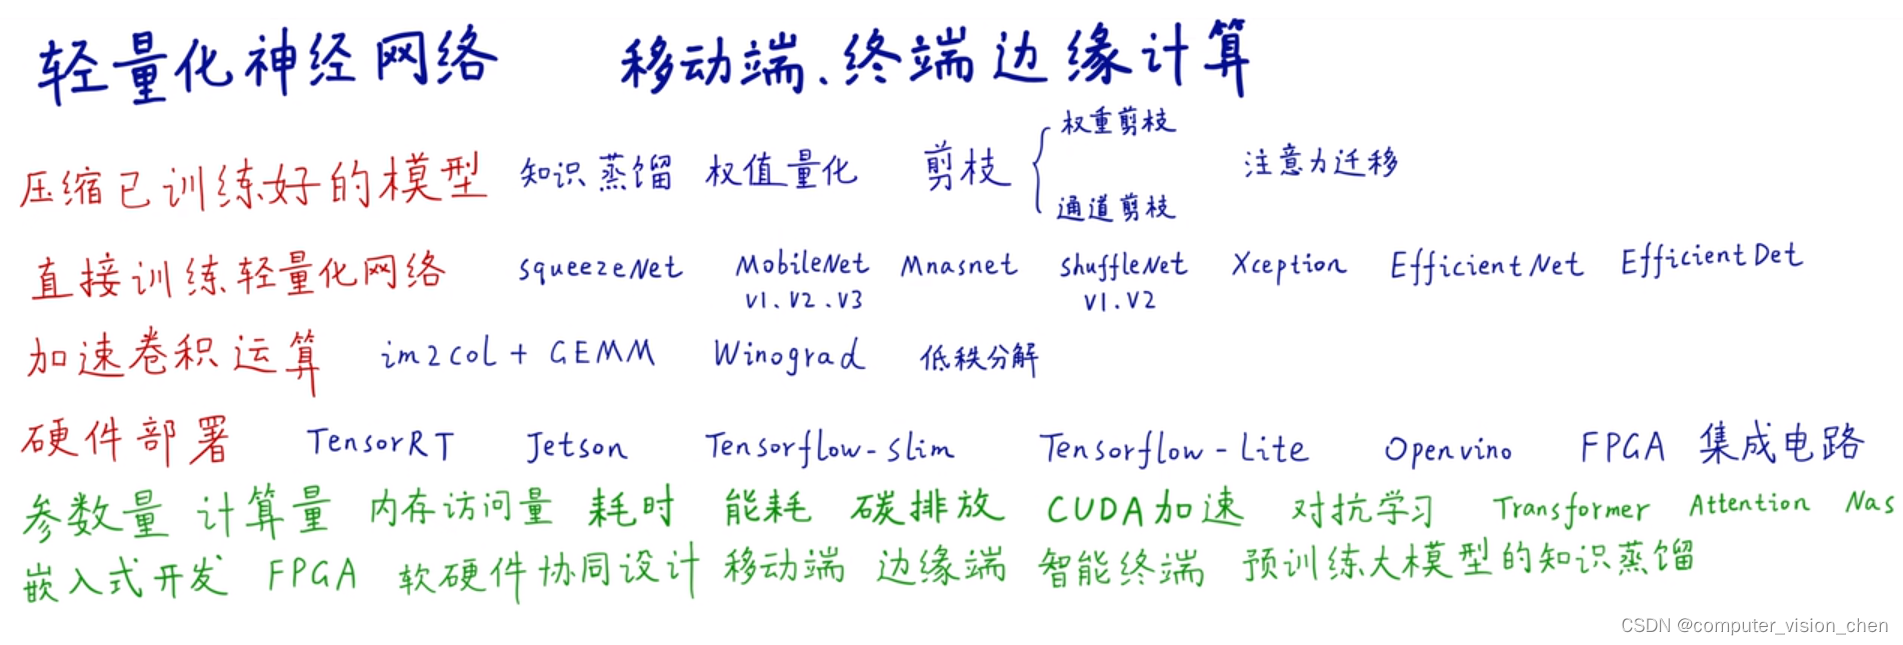 轻量化神经网络 移动端、终端边缘计算
压缩已训练好的模型 知识蒸馏 权值量化 剪枝 权重剪枝 通道剪枝 注意力迁移
直接训练轻量化网络 squeezeNet MobileNet V1.V2.V3 Mnasnet ShuffleNet V1.V2 Xception EfficientNet EfficientDet
加速卷积运算 im2col + GEMM Winograd 低秩分解
硬件部署 TensorRT Jetson Tensorflow-slim Tensorflow-Lite Openvino FPGA 集成电路
参数量 计算量 内存访问量 耗时 能耗 碳排放 CUDA加速 对抗学习 Transformer Attention Nas
嵌入式开发 FPGA 软硬件协同设计 移动端 边缘端 智能终端 预训练大模型的知识蒸馏
CSDN @computer_vision_chen